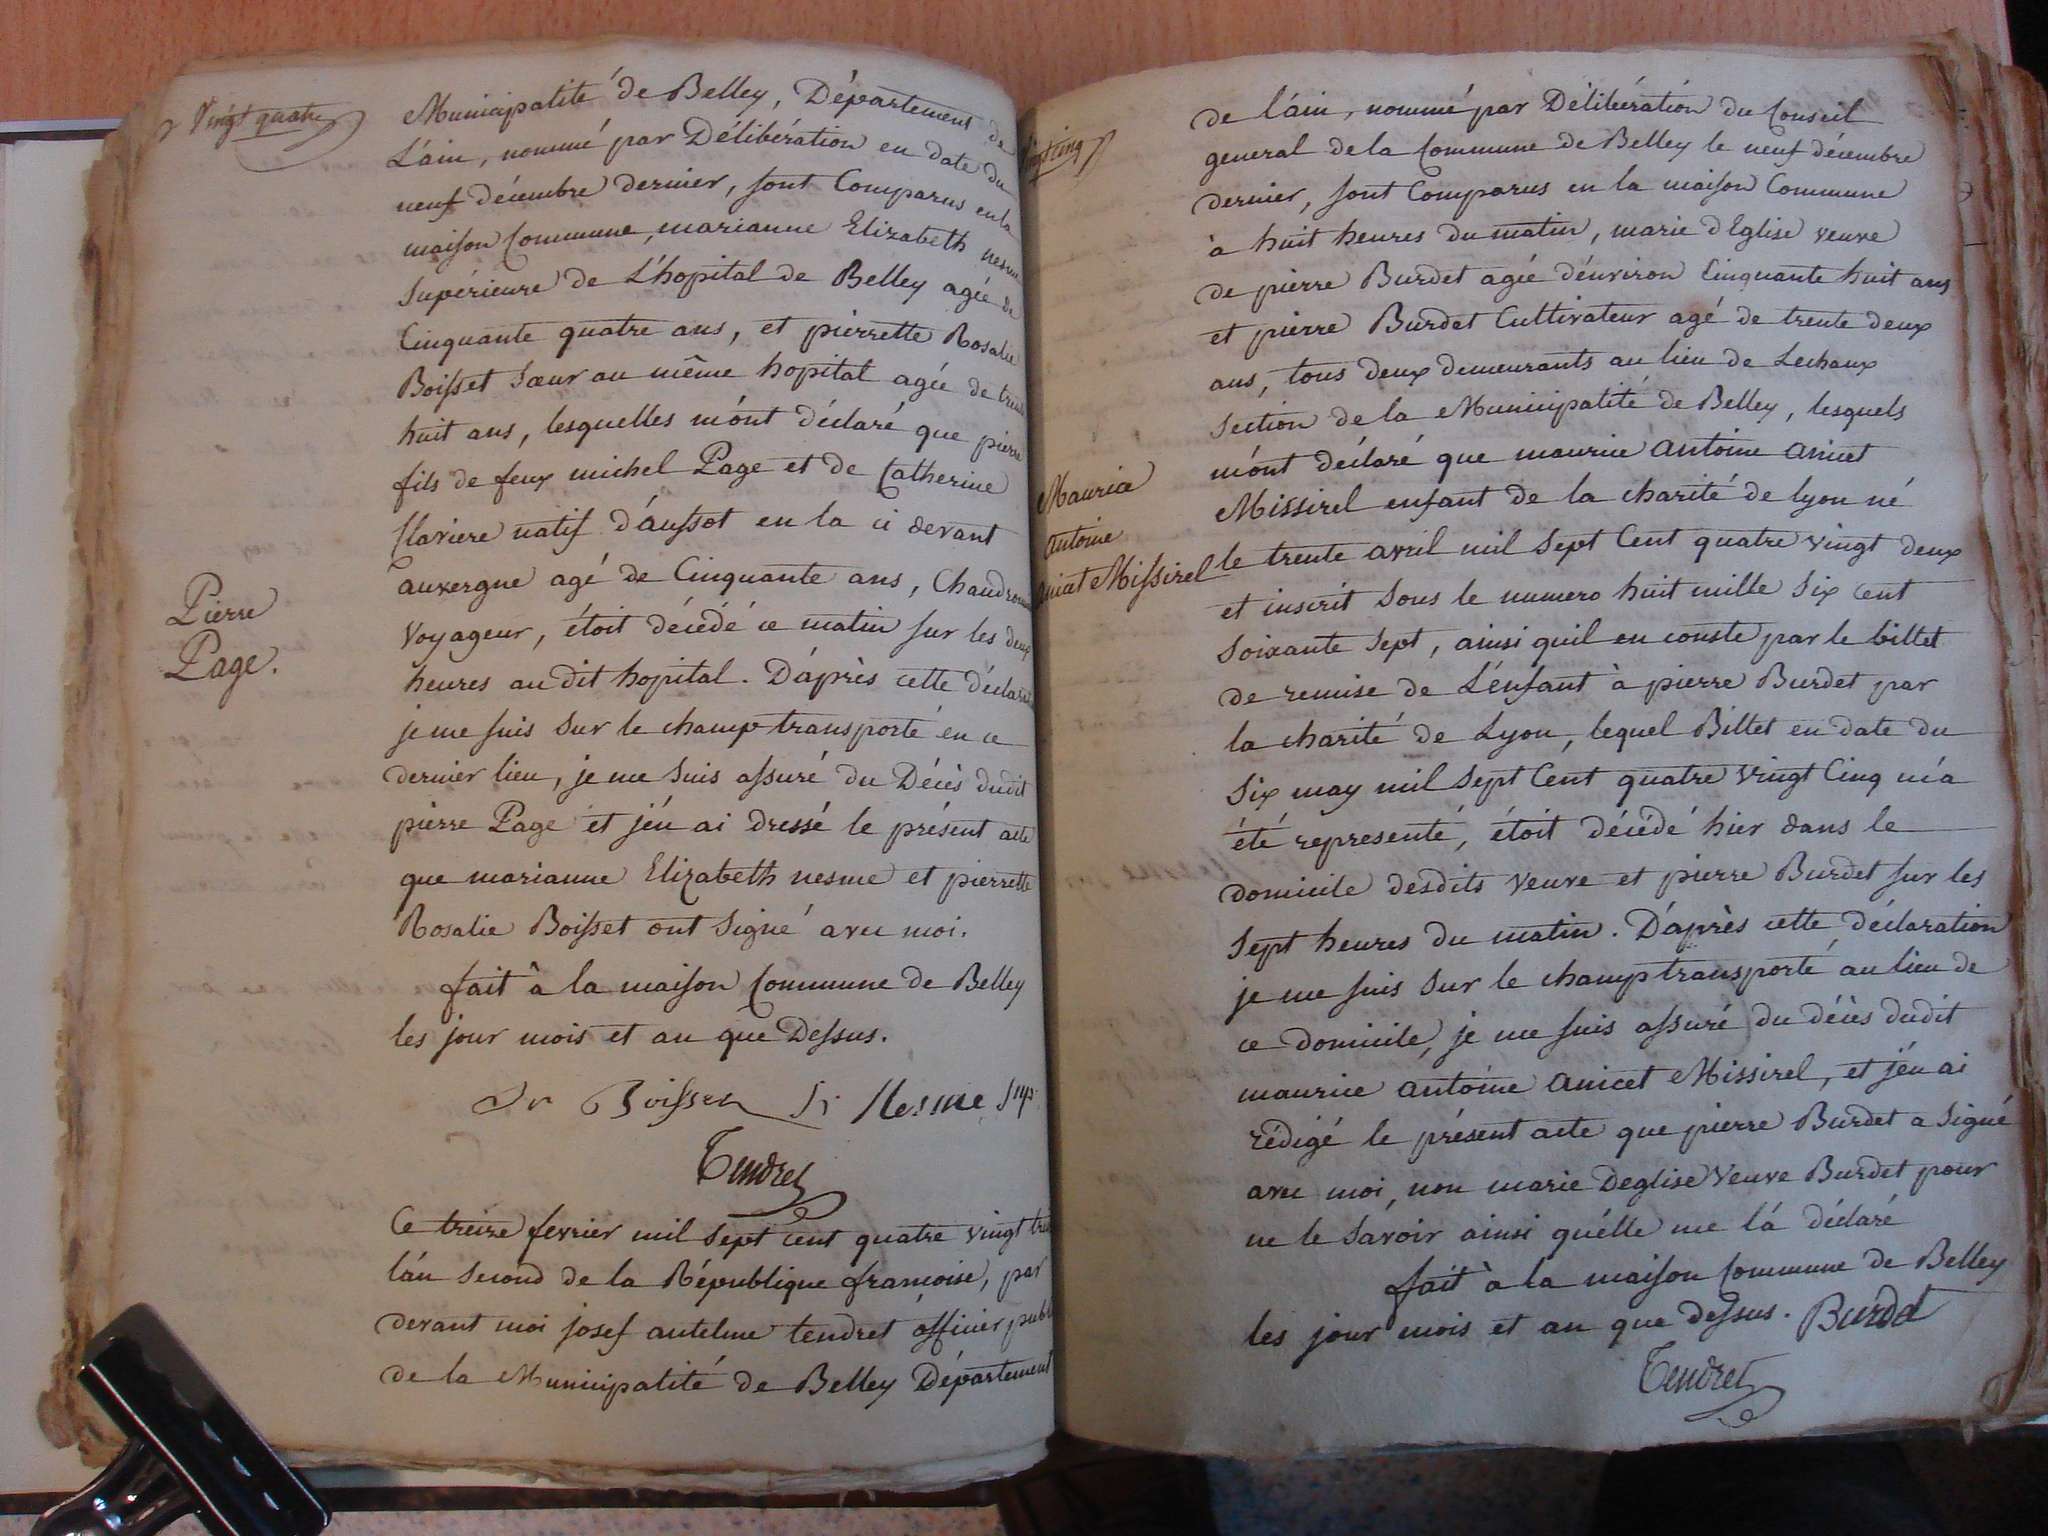 Vingt quatre
Municipalité de Belley, Département de
L'ain, nommé par Délibération en date du
neuf décembre dernier, sont Comparus en la
maison Commune, marianne Elizabeth nesme
Supérieure de L'hopital de Belley agée de
Cinquante quatre ans, et pierrette Rosalie
Boisset Sœur au même hopital agée de trente
huit ans, lesquelles m'ont déclaré que pierre
fils de feux michel Page et de Catherine
Claviere natif d'aussot en la ci devant
auvergne agé de Cinquante ans, Chaudronnier
Pierre
Page.
voyageur, étoit décédé ce matin sur les deux
heures au dit hopital. D'après cette déclaration
je me suis sur le champ transporté en ce
dernier lieu, je me suis assuré du Décès dudit
pierre Page et j'en ai dressé le présent acte
que marianne Elizabeth nesme et pierrette
Rosalie Boisset ont signé avec moi.
fait à la maison Commune de Belley
les jour mois et an que Dessus.
Sr Boisset Sr Nesme Supr
Tendret
Ce treize fevrier mil sept cent quatre vingt treize
l'an second de la République françoise, par
devant moi josef antelme tendret officier public
de la Municipalité de Belley Département
Vingt cinq
de l'ain, nommé par Délibération du Conseil
general de la Commune de Belley le neuf décembre
dernier, sont Comparus en la maison Commune
à huit heures du matin, marie d'Eglise veuve
de pierre Burdet agée d'environ Cinquante huit ans
et pierre Burdet Cultivateur agé de trente deux
ans, tous deux demeurants au lieu de Lechaux
section de la Municipalité de Belley, lesquels
m'ont déclaré que maurice antoine anicet
Maurice
antoine
anicet Missirel
Missirel enfant de la charité de lyon né
le trente avril mil sept Cent quatre vingt deux
et inscrit sous le numero huit mille six cent
soixante sept, ainsi quil en conste par le billet
de remise de L'enfant à pierre Burdet par
la charité de Lyon, lequel Billet en date du
six may mil sept Cent quatre vingt Cinq m'a
été representé, étoit décédé hier dans le
domicile desdits veuve et pierre Burdet sur les
sept heures du matin. D'après cette déclaration
je me suis sur le champ transporté au lieu de
ce domicile, je me suis assuré du décès dudit
maurice antoine anicet Missirel, et j'en ai
rédigé le présent acte que pierre Burdet a signé
avec moi, non marie Deglise Veuve Burdet pour
ne le savoir ainsi qu'elle me l'a déclaré
fait à la maison Commune de Belley
les jour mois et an que dessus. Burdet
Tendret